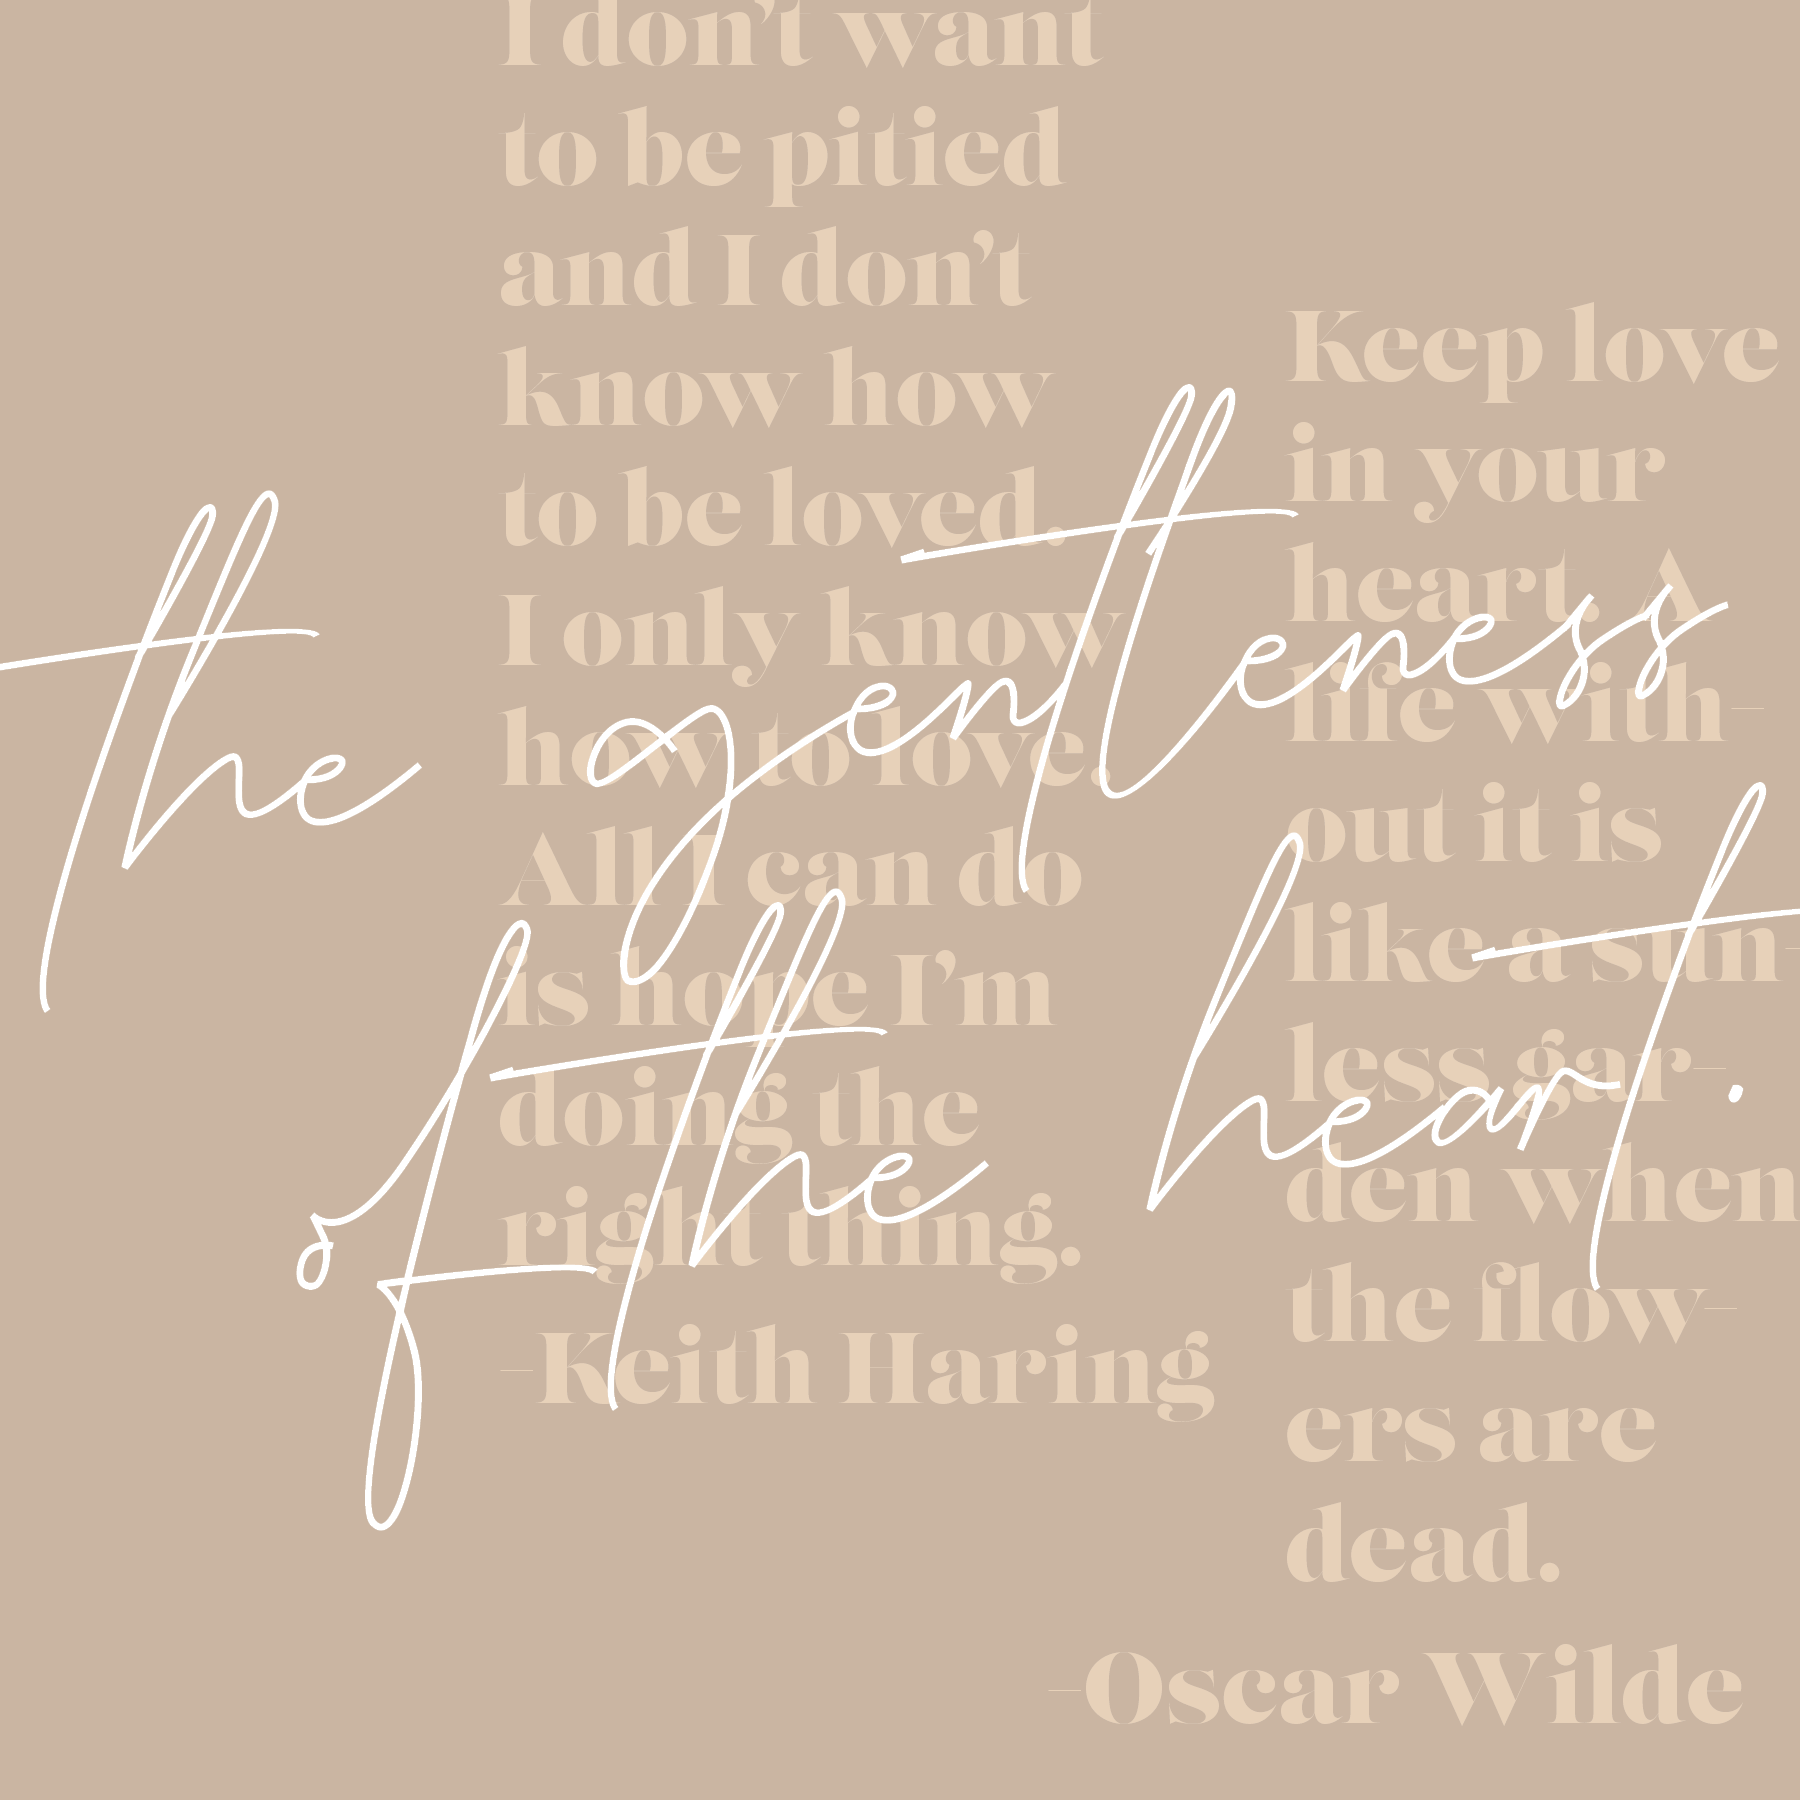 I don't want
to be pitied
and I don't
know how
to be loved.
I only know
how to love.
All I can do
is hope I'm
doing the
right thing.
–Keith Haring
Keep love
in your
heart. A
life with–
out it is
like a sun–
less gar–
den when
the flow–
ers are
dead.
–Oscar Wilde
the gentleness
of the heart.